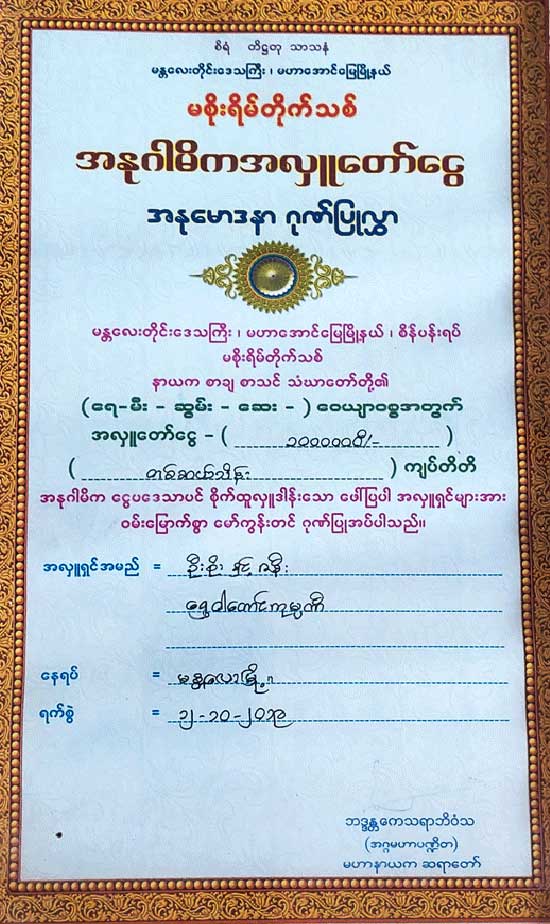 စိရံ တိဋ္ဌတု သာသနံ
မန္တလေးတိုင်းဒေသကြီး၊ မဟာအောင်မြေမြို့နယ်
မစိုးရိမ်တိုက်သစ်
အနုဂါမိကအလှူတော်ငွေ
အနုမောဒနာ ဂုဏ်ပြုလွှာ
မန္တလေးတိုင်းဒေသကြီး၊ မဟာအောင်မြေမြို့နယ်၊ စိန်ပန်းရပ်
မစိုးရိမ်တိုက်သစ်
နာယက စာချ စာသင် သံဃာတော်တို့၏
(ရေ-မီး - ဆွမ်း - ဆေး - ) ဝေယျာဝစ္စအတွက်
အလှူတော်ငွေ - ( ၁၀၀၀၀၀၀ိ/- )
( တစ်ဆယ်သိန်း ) ကျပ်တိတိ
အနုဂါမိက ငွေပဒေသာပင် စိုက်ထူလှူဒါန်းသော ပေါ်ပြပါ အလှူရှင်များအား
ဝမ်းမြောက်စွာ မော်ကွန်းတင် ဂုဏ်ပြုအပ်ပါသည်။
အလှူရှင်အမည် = ဦးစိုး နှင့် ဇနီး
ရွှေဝါတောင်ကုမ္ပဏီ
နေရပ် = မန္တလေးမြို့။
ရက်စွဲ = ၁၂-၁၀-၂၀၁၃
ဘဒ္ဒန္တကေသရာဘိဝံသ
(အဂ္ဂမဟာပဏ္ဍိတ)
မဟာနာယက ဆရာတော်